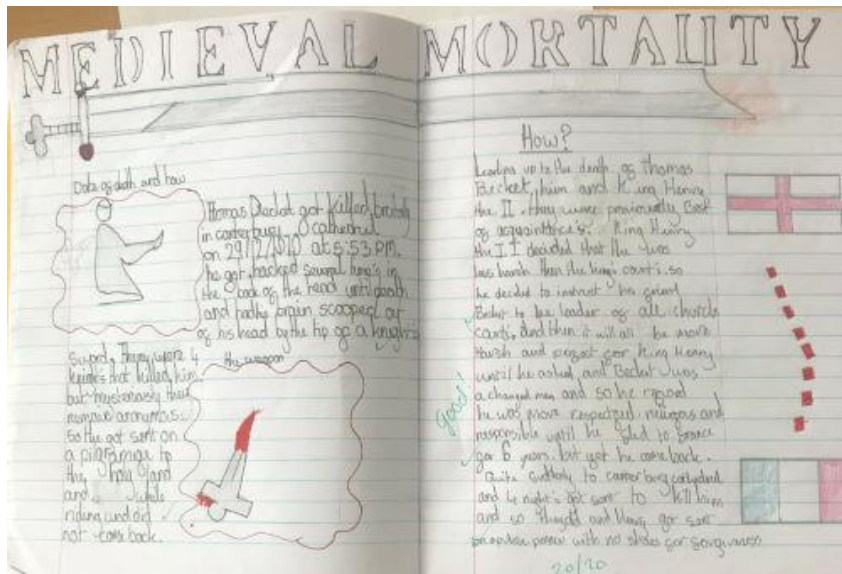 MEDIEVAL MORTALITY
Date of death and how
Thomas Becket got killed brutaly
in canterbury cathedral
on 29/12/1170 at 5:53 PM.
he got hacked several times in
the back of the head until death
and had his brain scooped out
of his head by the tip of a knight's
sword. There were 4
knights that killed him
but mysteriously their
remained anonymous
so they got sent on
a pilgrimige to
the holy land
and while
riding
not come back.
the weapon
How?
Leading up to the death of Thomas
Becket, him and King Henry
the II, they were previously Best
of acquaintance's. King Henry
the II decided that the was
less harsh than the king's court's, so
he decided to instruct his friend
Becket to be leader of all church
courts, and then it will all be more
harsh and perfect for King Henry
until he asked and Becket was
a changed man and so he refused
he was more respectful, religous and
responsible until he fled to france
for 6 years, but yet he came back.
Quite suddenly to canterbury cathedral
and 4 night's got sent to kill him
and so and Henry got sent
on with no shoes for forgiveness
good!
20/20